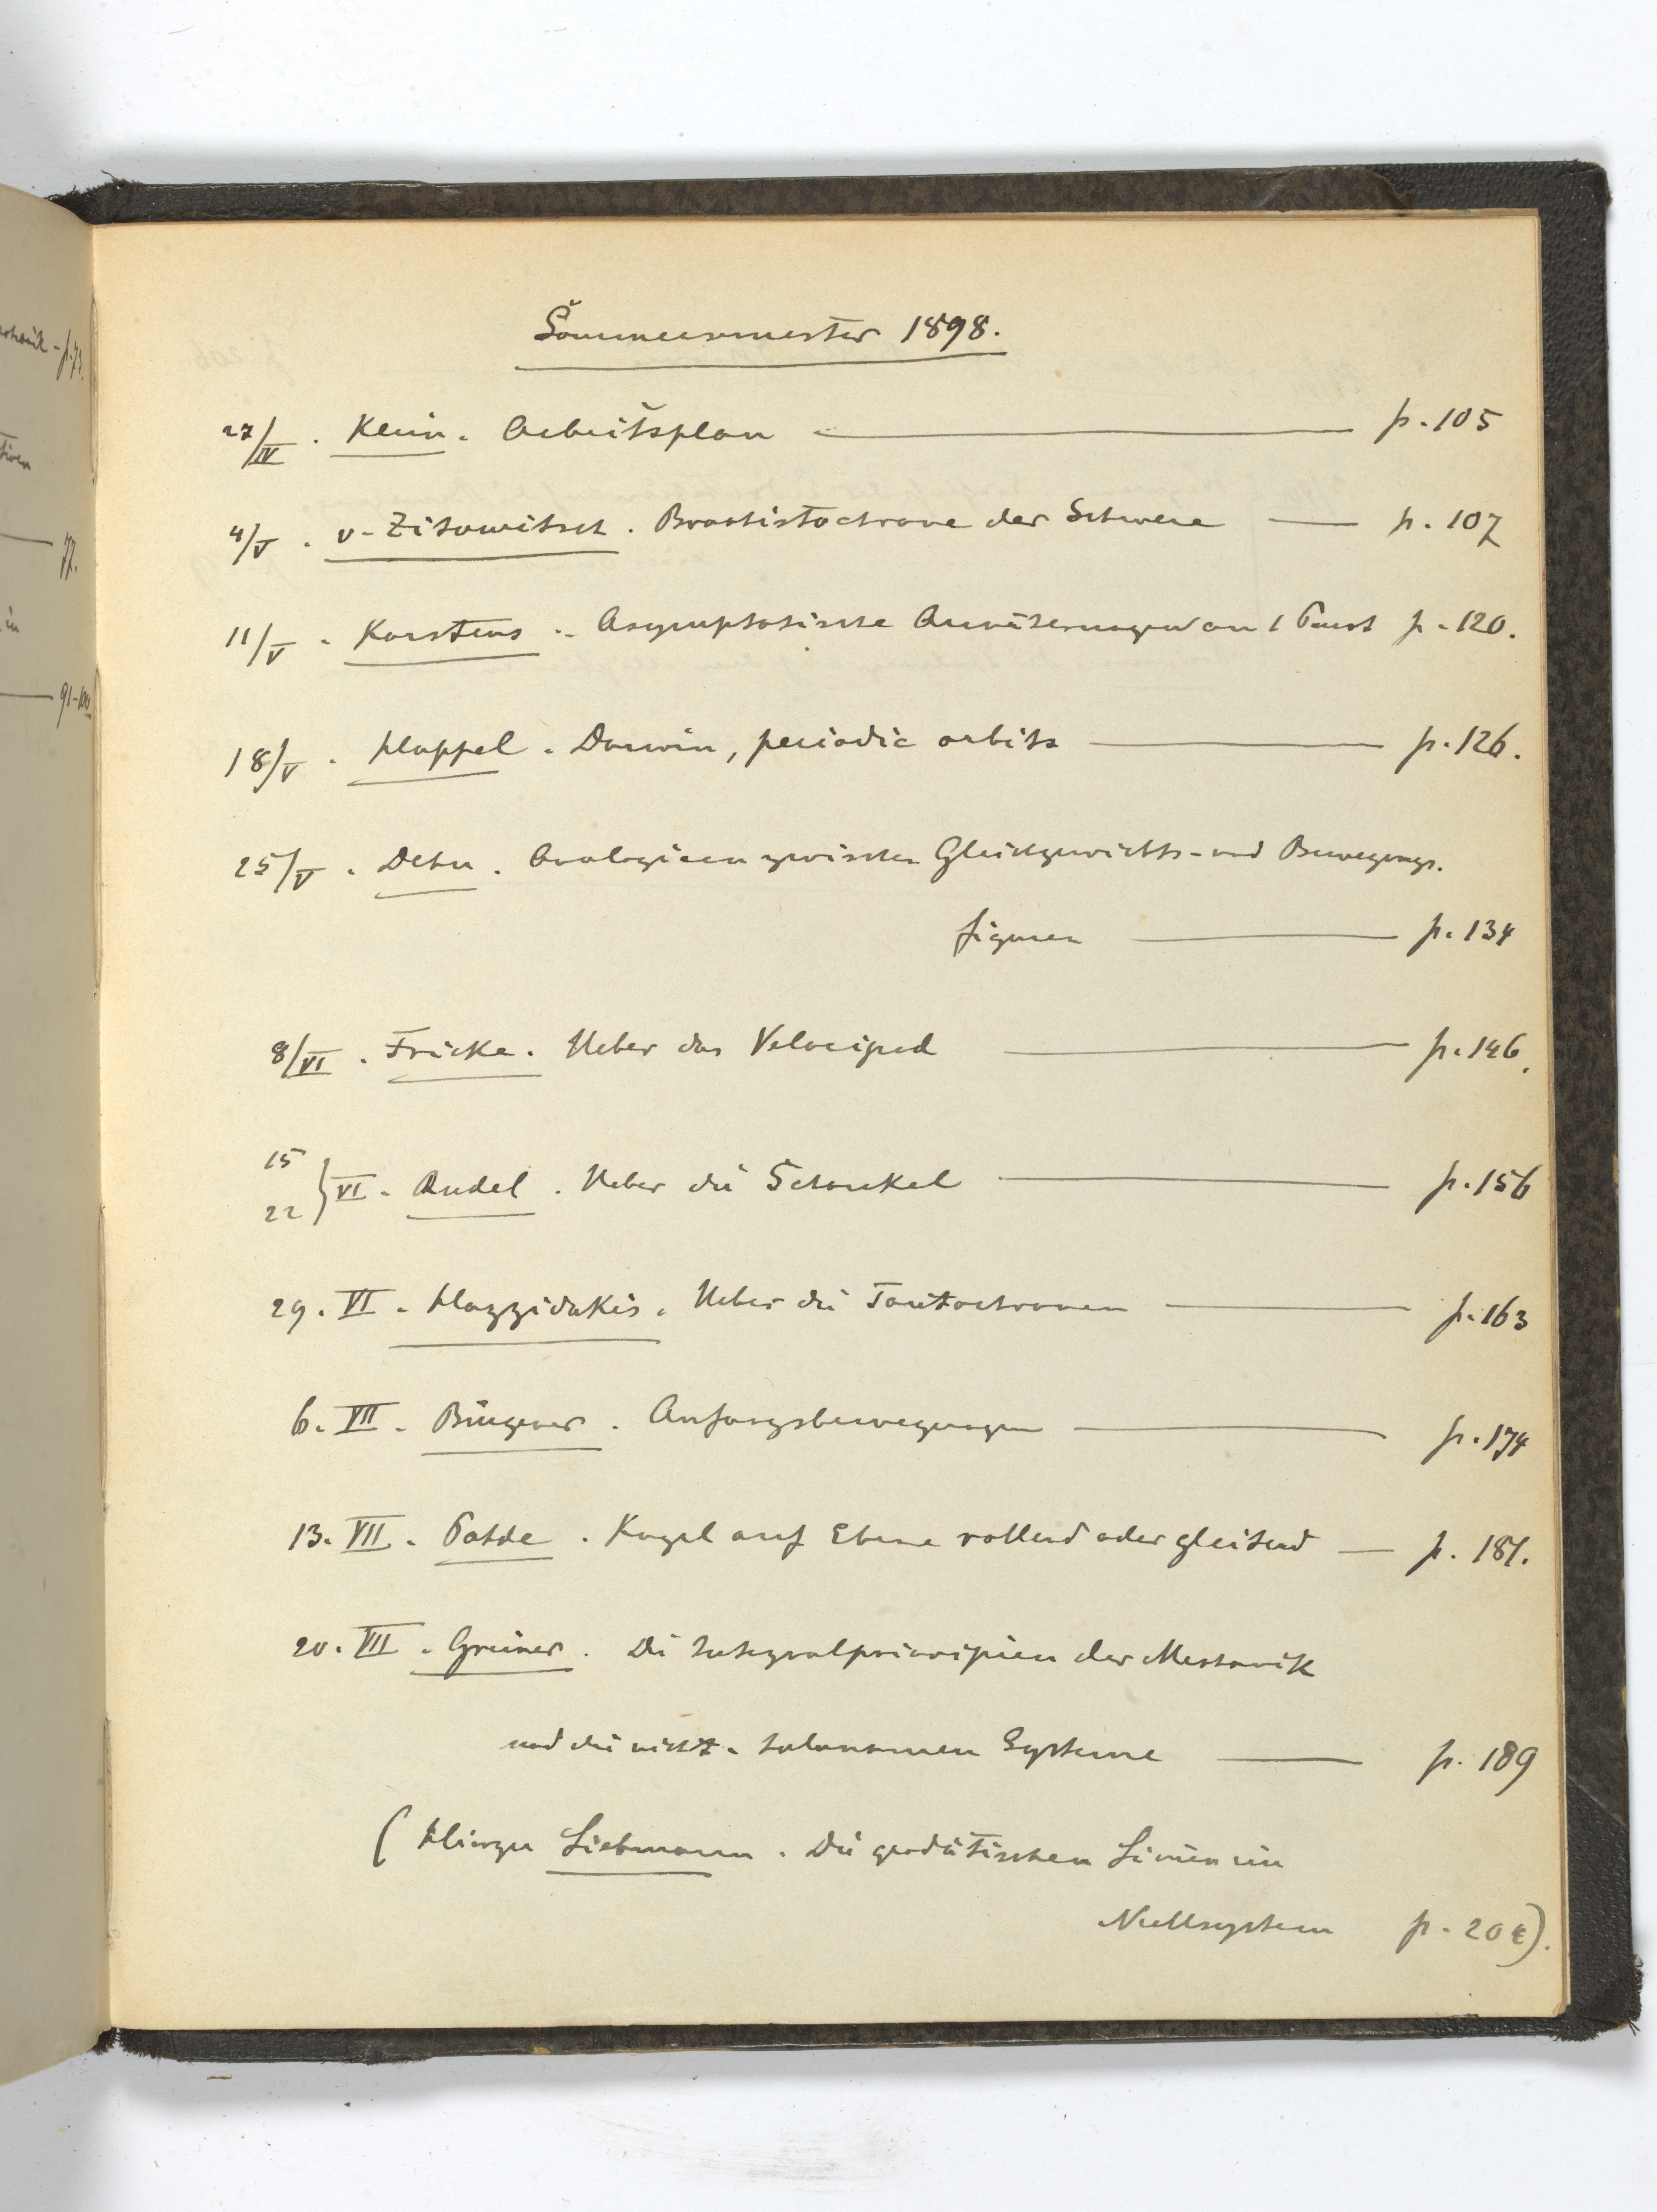 Sommersemester 1898.
27/IV. Klein. Arbeitsplan p. 105
4/V. v. Zitowitsch. Brachistochrone der Schwere p. 107
11/V. Karstens. Asymptotische Annäherungen an 1 p. 120.
18/V. Happel. Darwin, periodic orbits p. 126.
25/V. Dehn. Analogieen zwischen Gleichgewichts- und Bewegungs-
figuren p. 134
8/VI. Fricke. Ueber das Velociped p. 146.
15
22 } VI. Rudel. Ueber die Schaukel p. 156
29. VI. Hazzidakis. Ueber die Tautochronen p. 163
6. VII. Bingener. Anfangsbewegungen p. 174
13. VII. Kugel auf Ebene rollend oder gleitend p. 181.
20. VII. Greiner. Die Integralprincipien der Mechanik
und die nicht-holonomen Systeme p. 189
(Hierzu Liebmann. Die geodätischen Linien im
Nullsystem p. 204).
77.
91-100